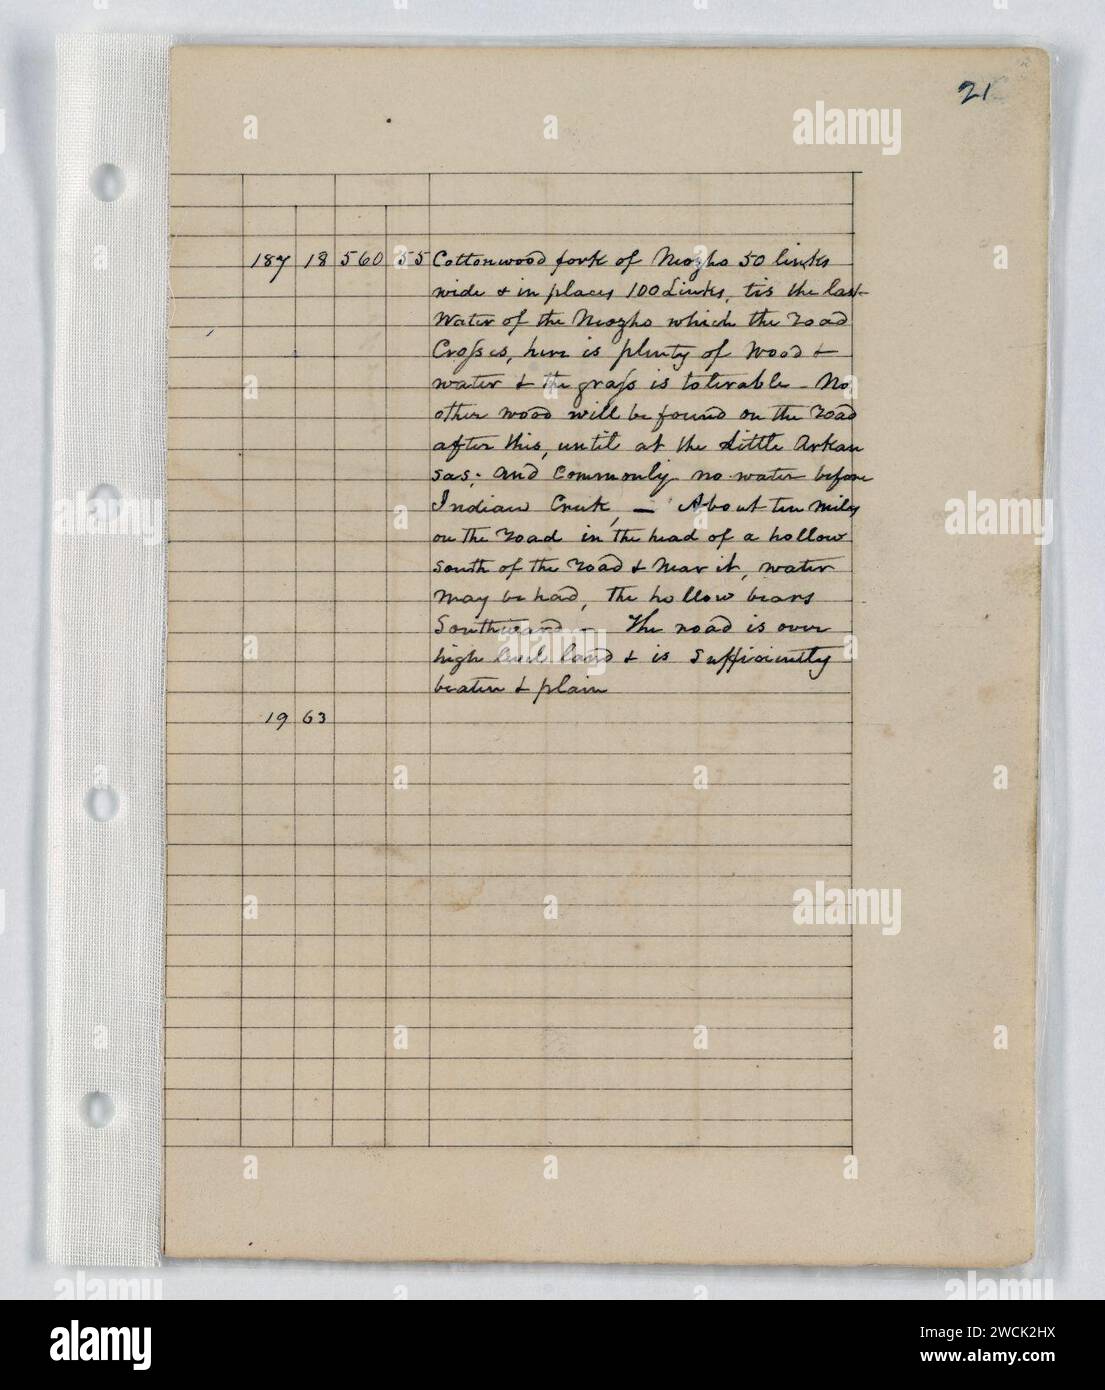 21
187 18 560 55 Cottonwood fork of Neozho 50 links
wide & in places 100 Links, tis the last
Water of the Neozho which the road
Crosses, here is plenty of Wood &
water & the grass is tolerable - No
other wood will be found on the road
after this, until at the Little Arkan
sas; and Commonly no water before
Indian Creek, — About ten miles
on the road in the head of a hollow
South of the road & near it, water
may be had, the hollow bears
Southward - The road is over
high level land & is Sufficiently
beaten & plain
19 63
alamy
Image ID: 2WCK2HX
www.alamy.com